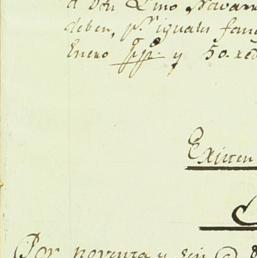 a Don Lino Navarr
deben, pr. iguales
Enero pp.º y 50. 
Existen
Por noventa y seis